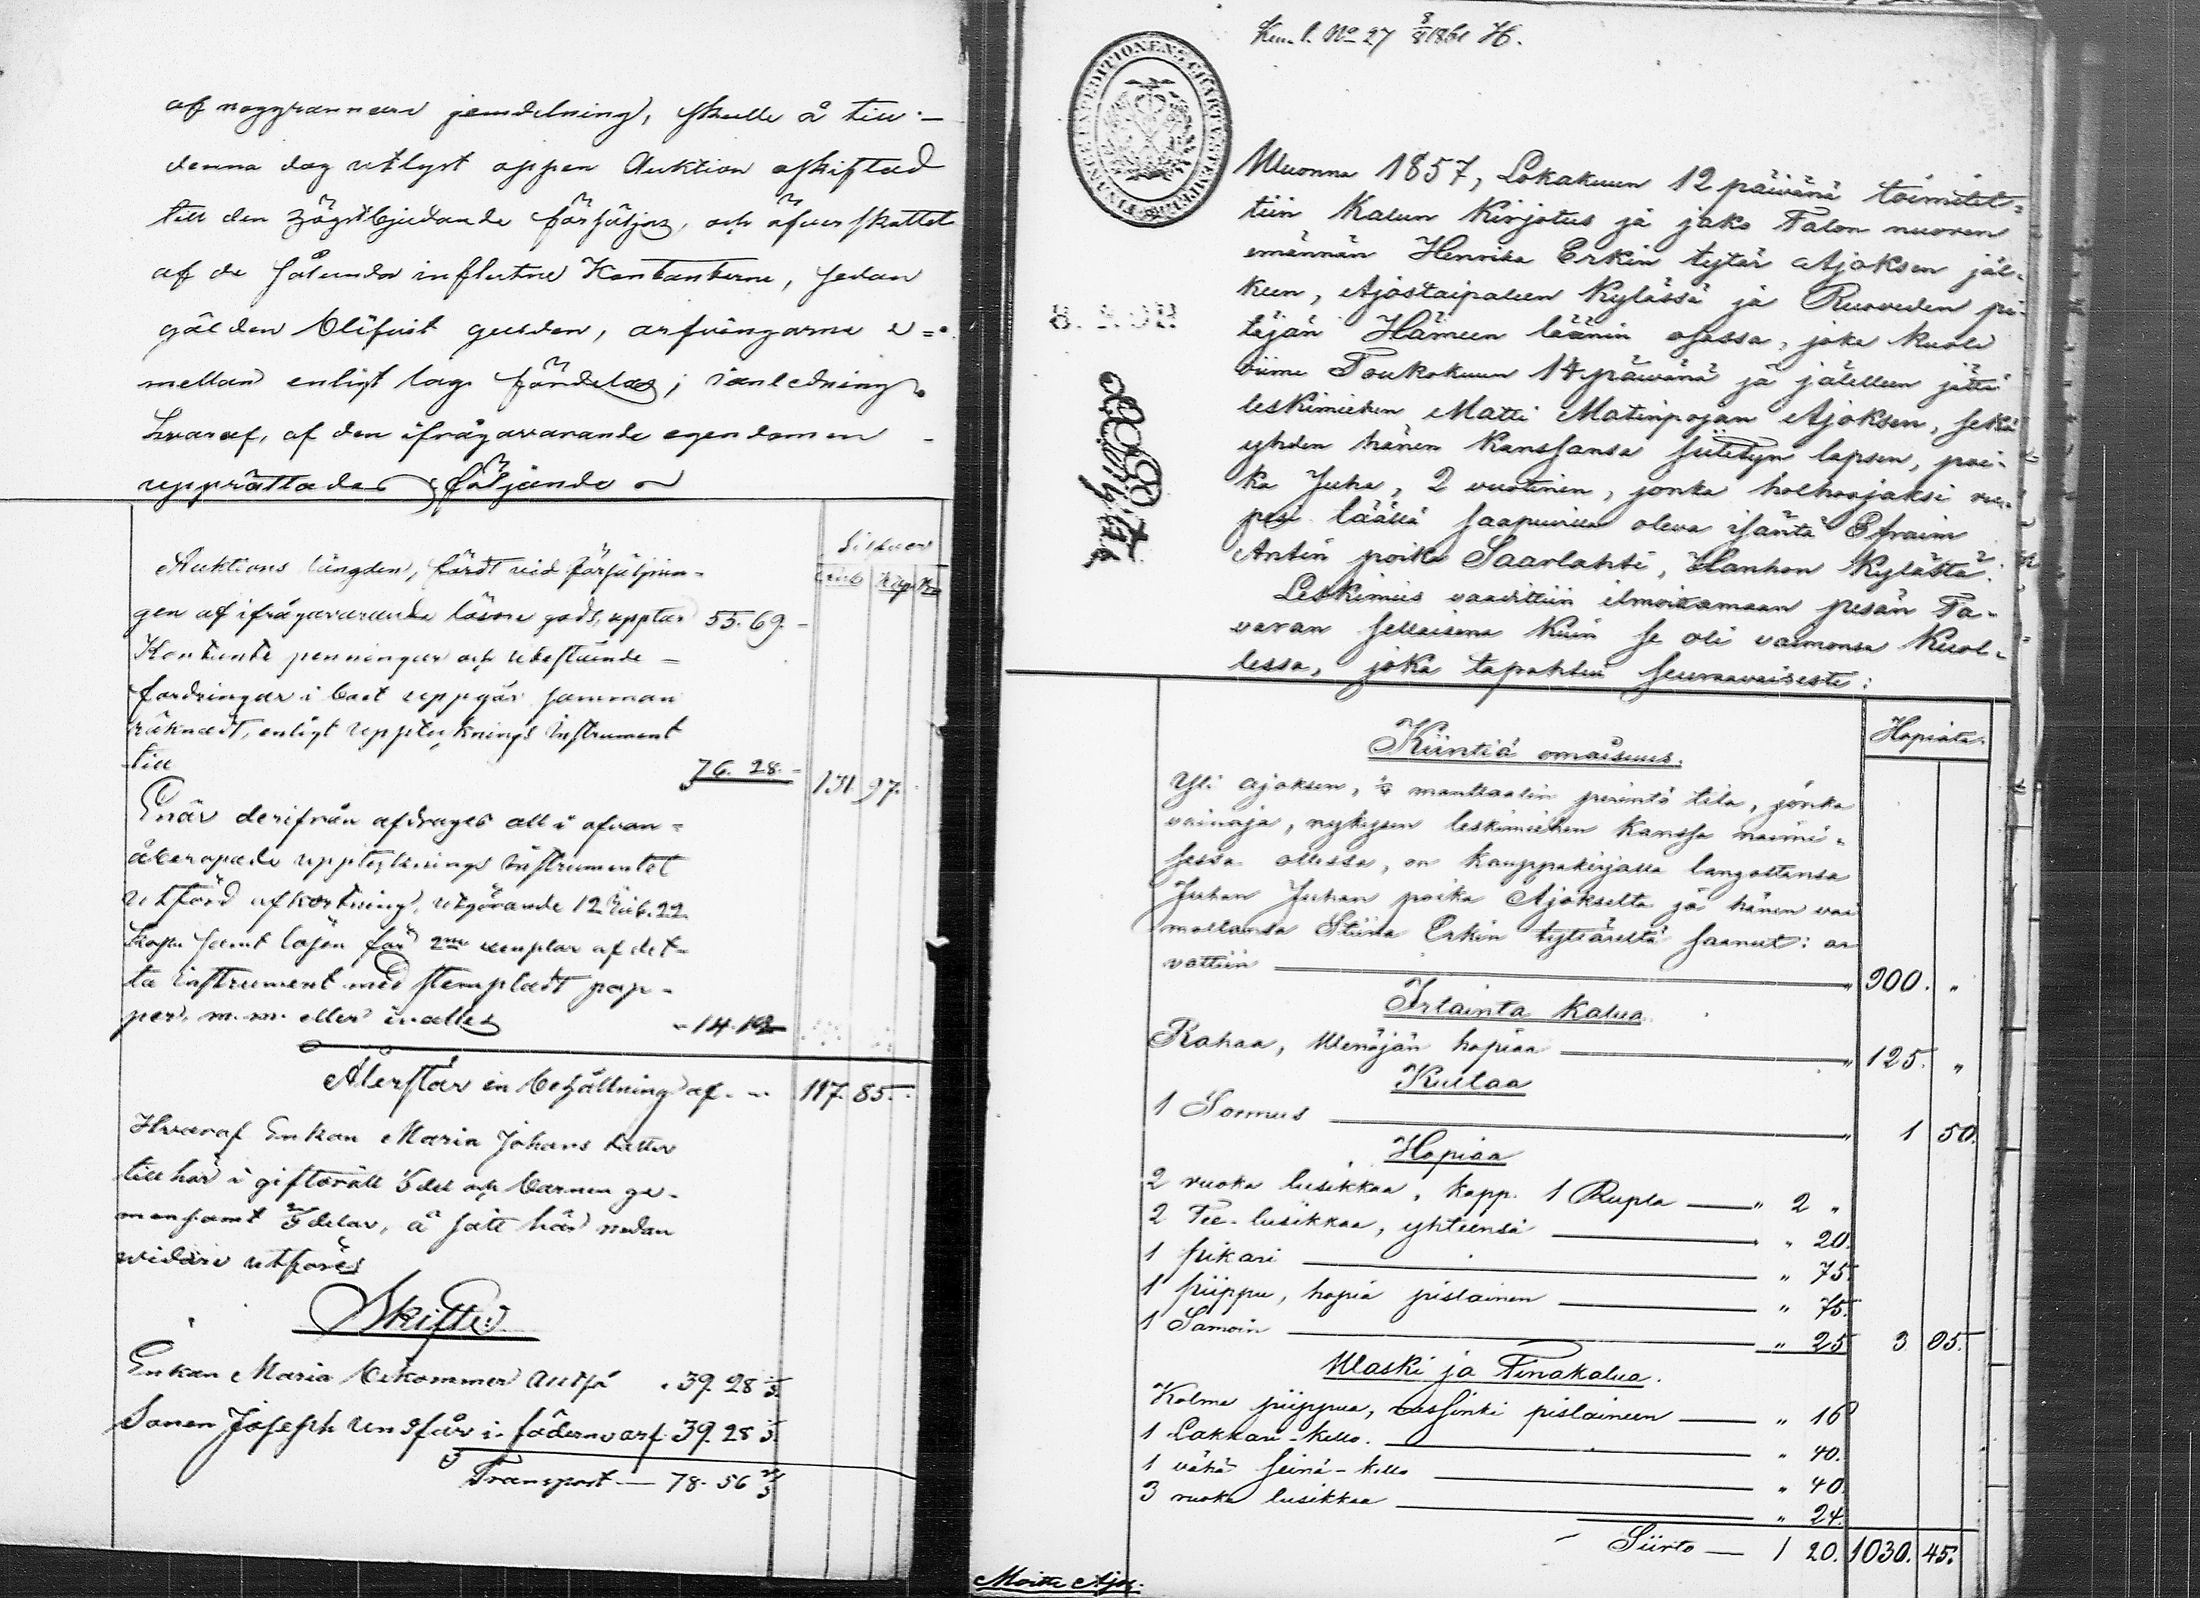 af noggrannare jemdelning, skulle å till
denna dag utlyst oppen Auktion afskiftad
till den högstbjudande försäljas, och öfverskottet
af de sålunda influtne Kontanterne, sedan
gälden blifvit gulden, arfvingarne e=
mellan enligt lag fördelas; i anledning
hvaraf, af den ifrågavarande egendomen
upprättades följande
Silfver
Rub. Kop.
Auktions längden, förd vid försäljnin-
gen af ifrågavarande lösöre gods, upptar 55. 69.
Kontante penningar och utestående
fordringar i boet uppgår samman
räknadt, enligt upptecknings instrument
till 76. 28. 131 97.
Enär derifrån afdrages all i ofvan=
åberopade upptecknings instrumentet
utförd afkortning, utgörande 12 Rub. 22
Kop. samt lösen för 2ne exemplar af det=
ta instrument med stempladt pap-
per, m. m. eller inalles 14. 12
Återstår en behållning af 117. 85.
Hvaraf Enkan Maria Johans dotter
tillhör i giftorätt 1/3 del och barnen ge-
mensamt 2/3 delar, å sätt här nedan
vidare utföres
Skifte
Enkan Maria bekommer Andpå 39. 28 1/3
Sonen Joseph undfår i fäderne arf 39. 28 1/3
Transport — 78. 56 2/3
No 27 8/8 1861 H.
FINANCE EXPEDITIONENS CHARTÆ STEMPEL
Wuonna 1857, Lokakuun 12 päivänä toimitet=
tiin Kalun Kirjotus ja jako Talon nuoren
emännän Henrika Erkin tytär Ajoksen jäl=
keen, Ajostaipaleen Kylässä ja Ruoveden pi-
täjän Hämeen läänin osassa, joka kuoli
viime Toukokuun 14 päivänä ja jälelleen jätti
leskimiehen Matti Matinpojan Ajoksen, sekä
yhden hänen Kanssansa siitetyn lapsen, poi-
ka Juha, 2 vuotinen, jonka holhoojaksi ru-
pesi täällä saapuvilla oleva isäntä Efraim
Antin poika Saarlahti, Hanhon Kylästä.
Leskimies vaadittiin ilmoittamaan pesän Ta-
varan sellaisena kuin se oli vaimonsa Kuol=
lessa, joka tapahtui seuraavaisesti:
Hopiata.
Kiintiä omaisuus.
Yli Ajoksen, 1/6 manttaalin perintö tila, jonka
vainaja, nykysen leskimiehen kanssa naimi=
sessa ollessa, on kauppakirjalla langoltansa
Juhan Juhan poika Ajokselta ja hänen vai
moltansa Stiina Erkin tyttäreltä saanut: ar
vattiin " 900. "
Irtainta Kalua.
Rahaa, Wenäjän hopiaa " 125. "
Kultaa
1 Sormus " 1 50.
Hopiaa
2 ruoka lusikkaa, kapp. 1 Rupla " 2 "
2 Tee-lusikkaa, yhteensä " 20.
1 pikari " 75.
1 piippu, hopia pislainen " 75.
1 Samoin " 25 3 95.
Waski ja Tinakalua.
Kolme piippua, messinki pislaineen " 16
1 Lakkari-kello. " 40.
1 vähä seinä-kello " 40
3 ruoka lusikkaa " 24.
Siirto — 1 20. 1030. 45.